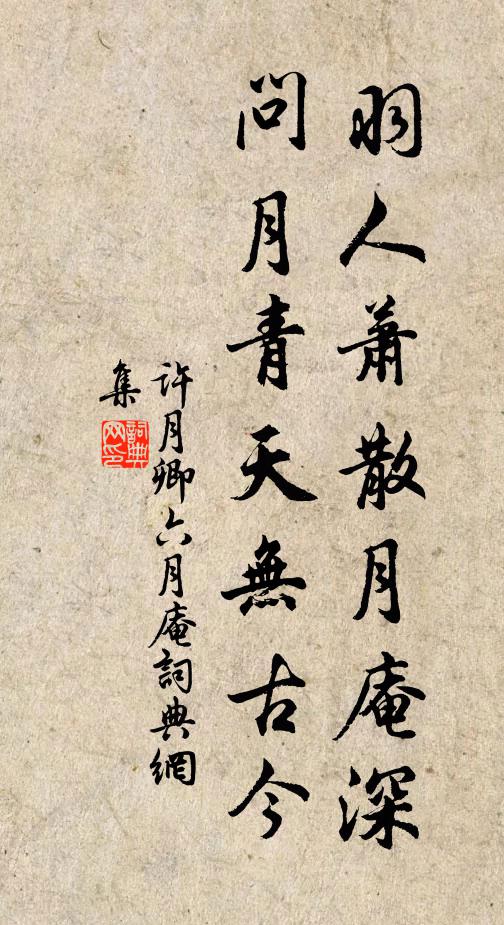 羽人蕭散月庵深
問月青天無古今
許月卿六月庵詞典網
集
詞典
网印